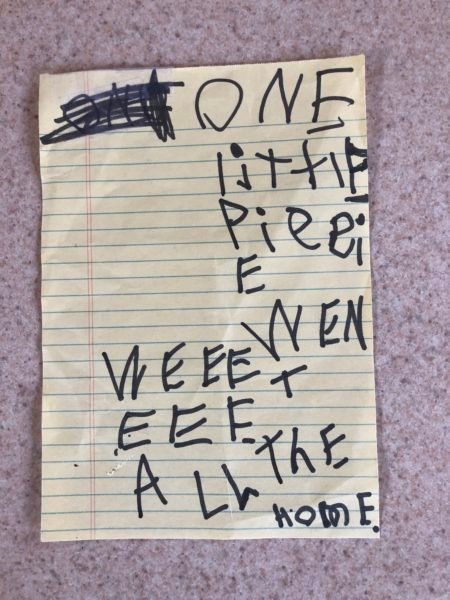 ONE
littlE
Piggi
E
WEN
WEEE T
EEE
ALL thE
HOME.